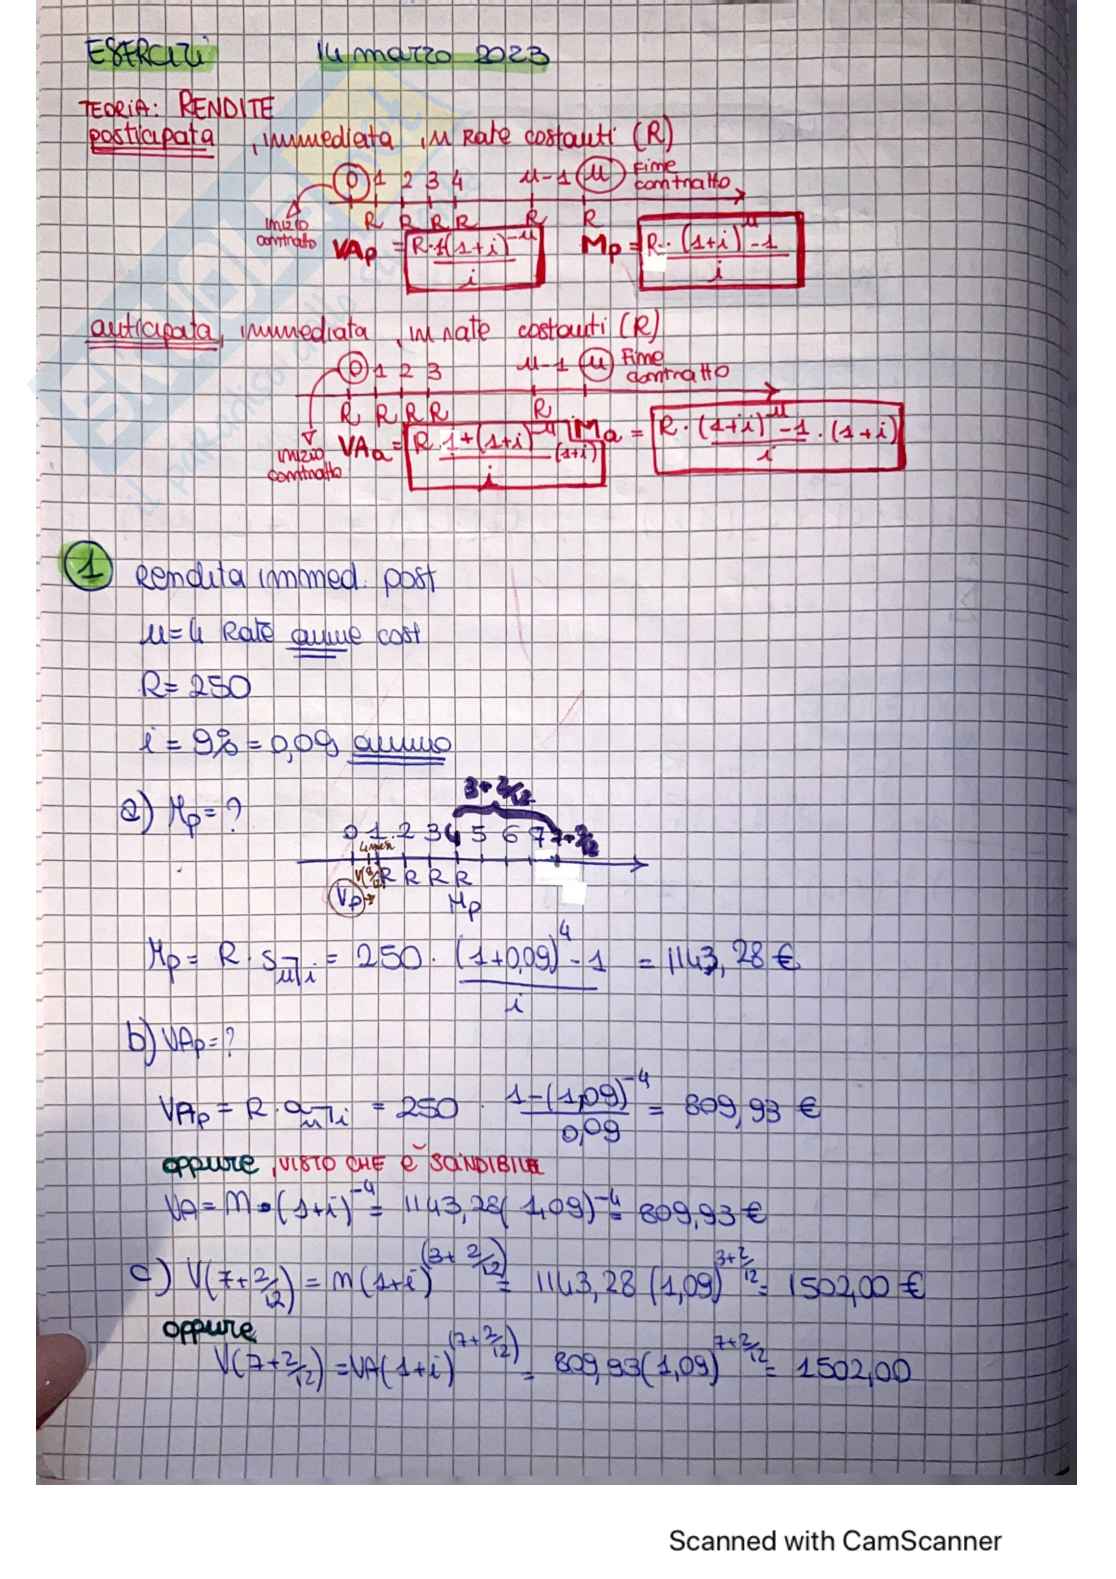 ESERCIZI 14 marzo 2023
TEORIA: RENDITE
posticipata, immediata, in Rate costanti (R)
0 1 2 3 4 n-1 n Fine contratto
inizio contratto R R R R R R
VAp = R·1(1+i)^-n / i Mp = R· (1+i)^n -1 / i
anticipata, immediata, in rate costanti (R)
0 1 2 3 n-1 n Fine contratto
R R R R R
inizio contratto VAa = R·1+(1+i)^-n / i (1+i) Ma = R·(1+i)^n -1 / i ·(1+i)
1 Rendita immed. post
n=4 Rate annue cost
R= 250
i = 9% = 0,09 annuo
a) Mp=?
3+2/12
0 1 2 3 4 5 6 7 7+2/12
R R R R
Vp Mp
Mp = R· s n̅|i = 250 · (1+0,09)^4 -1 / i = 1143,28 €
b) VAp=?
VAp = R·a n̅|i = 250 · 1-(1,09)^-4 / 0,09 = 809,93 €
oppure, VISTO CHE È SCINDIBILE
VA = M·(1+i)^-4 = 1143,28(1,09)^-4 = 809,93 €
c) V(7+2/12) = M(1+i)^(3+2/12) = 1143,28 (1,09)^3+2/12 = 1502,00 €
oppure
V(7+2/12) = VA(1+i)^(7+2/12) = 809,93(1,09)^7+2/12 = 1502,00
Scanned with CamScanner